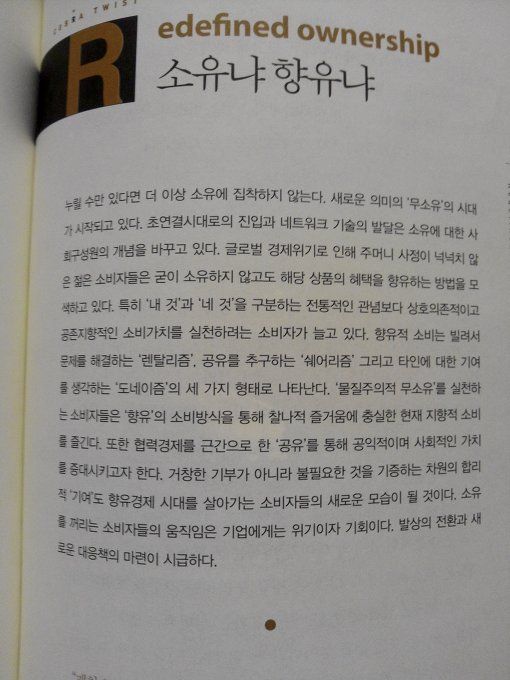 COBRA TWIST
Redefined ownership
소유냐 향유냐
누릴 수만 있다면 더 이상 소유에 집착하지 않는다. 새로운 의미의 '무소유'의 시대
가 시작되고 있다. 초연결시대로의 진입과 네트워크 기술의 발달은 소유에 대한 사
회구성원의 개념을 바꾸고 있다. 글로벌 경제위기로 인해 주머니 사정이 넉넉치 않
은 젊은 소비자들은 굳이 소유하지 않고도 해당 상품의 혜택을 향유하는 방법을 모
색하고 있다. 특히 '내 것'과 '네 것'을 구분하는 전통적인 관념보다 상호의존적이고
공존지향적인 소비가치를 실천하려는 소비자가 늘고 있다. 향유적 소비는 빌려서
문제를 해결하는 '렌탈리즘', 공유를 추구하는 '쉐어리즘' 그리고 타인에 대한 기여
를 생각하는 '도네이즘'의 세 가지 형태로 나타난다. '물질주의적 무소유'를 실천하
는 소비자들은 '향유'의 소비방식을 통해 찰나적 즐거움에 충실한 현재 지향적 소비
를 즐긴다. 또한 협력경제를 근간으로 한 '공유'를 통해 공익적이며 사회적인 가치
를 증대시키고자 한다. 거창한 기부가 아니라 불필요한 것을 기증하는 차원의 합리
적 '기여'도 향유경제 시대를 살아가는 소비자들의 새로운 모습이 될 것이다. 소유
를 꺼리는 소비자들의 움직임은 기업에게는 위기이자 기회이다. 발상의 전환과 새
로운 대응책의 마련이 시급하다.